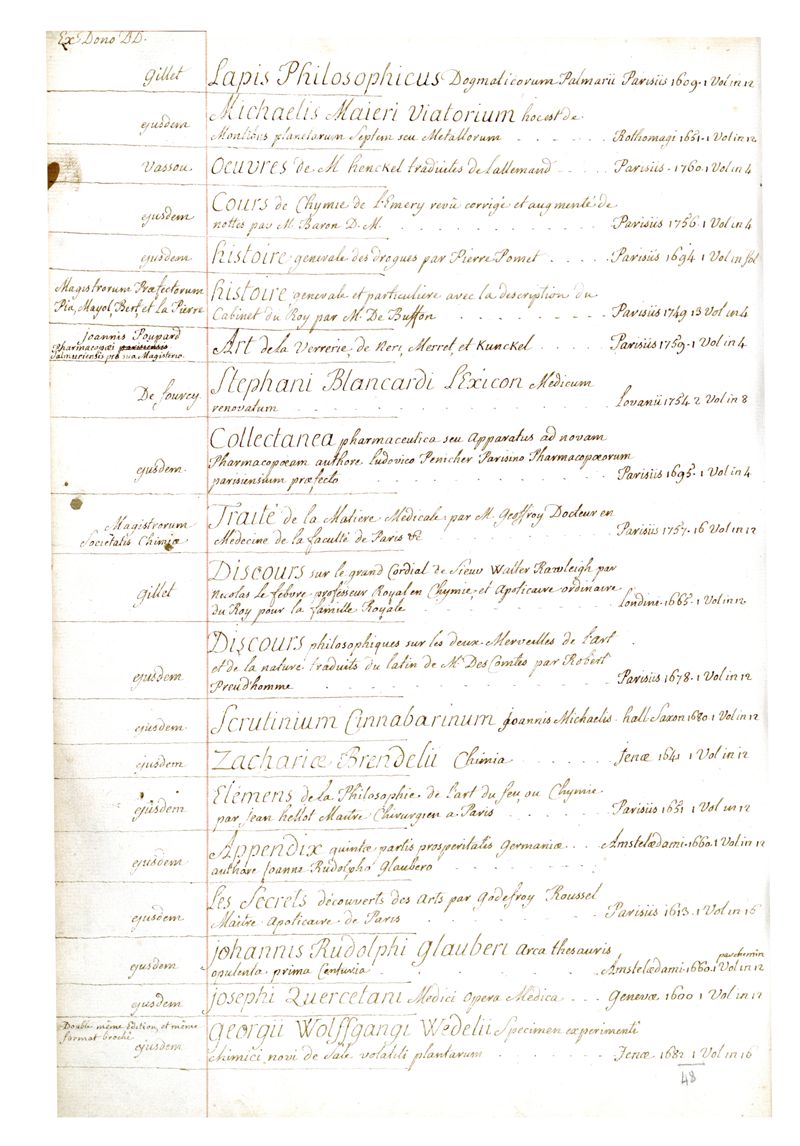 Ex Dono DD.
Gillet Lapis Philosophicus Dogmaticorum Palmarii Parisiis 1609. 1 Vol in 12
ejusdem Michaelis Maieri Viatorium hoc est de
Montibus planetarum Septem seu Metallorum Rothomagi 1651. 1 Vol in 12
Vassou Oeuvres de M henckel traduites de l'allemand Parisiis 1760. 1 Vol in 4
ejusdem Cours de Chymie de l'Emery revû corrigé et augmenté de
nottes par M. Baron D. M. Parisiis 1756. 1 Vol in 4
ejusdem histoire generale des drogues par Pierre Pomet Parisiis 1694. 1 Vol in fol
Magistrorum Præfectorum histoire generale et particuliere avec la description du
Pia, Mayol, Bert, et la Pierre Cabinet du Roy par M. De Buffon Parisiis 1749 13 Vol in 4
Joannis Poupard
Pharmacopæi parisiensis Art de la Verrerie, de Neri, Merret, et Kunckel Parisiis 1759. 1 Vol in 4
Salmuriensis pro sua Magisterio
De Fourcy Stephani Blancardi LExicon Medicum
renovatum Lovanii 1754 2 Vol in 8
Collectanea pharmaceutica seu Apparatus ad novam
ejusdem. Pharmacopœam authore Ludovico Penicher Parisino Pharmacopœorum
parisiensium præfecto Parisiis 1695. 1 Vol in 4
Magistrorum Traité de la Matiere Medicale par M. Geoffroy Docteur en
Societatis Chimiæ Médecine de la faculté de Paris &c Parisiis 1757. 16 Vol in 12
Discours sur le grand Cordial de Sieur Walter Rawleigh par
Gillet Nicolas le febvre professeur Royal en Chymie, et Apoticaire ordinaire
du Roy pour la famille Royale Londine 1665. 1 Vol in 12
Discours philosophiques sur les deux Merveilles de l'art
et de la nature traduits du latin de Mr Des Comtes par Robert
ejusdem Preudhomme Parisiis 1678. 1 Vol in 12
ejusdem Scrutinium Cinnabarinum Joannis Michaelis. hall. Saxon 1680. 1 Vol in 12
ejusdem Zachariæ Brendelii Chimia Jenæ 1641 1 Vol in 12
Elémens de la Philosophie de l'art du feu, ou Chymie
ejusdem par Jean hellot Maitre Chirurgien a Paris Parisiis 1651 1 Vol in 12
Appendix quintæ partis prosperitatis Germaniæ Amstelædami. 1660. 1 Vol in 12
ejusdem authore Joanne Rudolpho Glaubero
Les Secrets découverts des Arts par Godefroy Roussel
ejusdem Maitre Apoticaire de Paris Parisiis 1613. 1 Vol in 16
Johannis Rudolphi Glauberi Arca thesauris
parchemin
ejusdem opulenta prima Centuria Amstelædami. 1660. 1 Vol in 12
ejusdem Josephi Quercetani Medici Opera Medica Genevæ 1600 1 Vol in 12
Double même Edition, et même Georgii Wolffgangi Wedelii Specimen experimenti
format broché
ejusdem chimici, novi de Sale volatili plantarum Jenæ 1682 1 Vol in 16
48